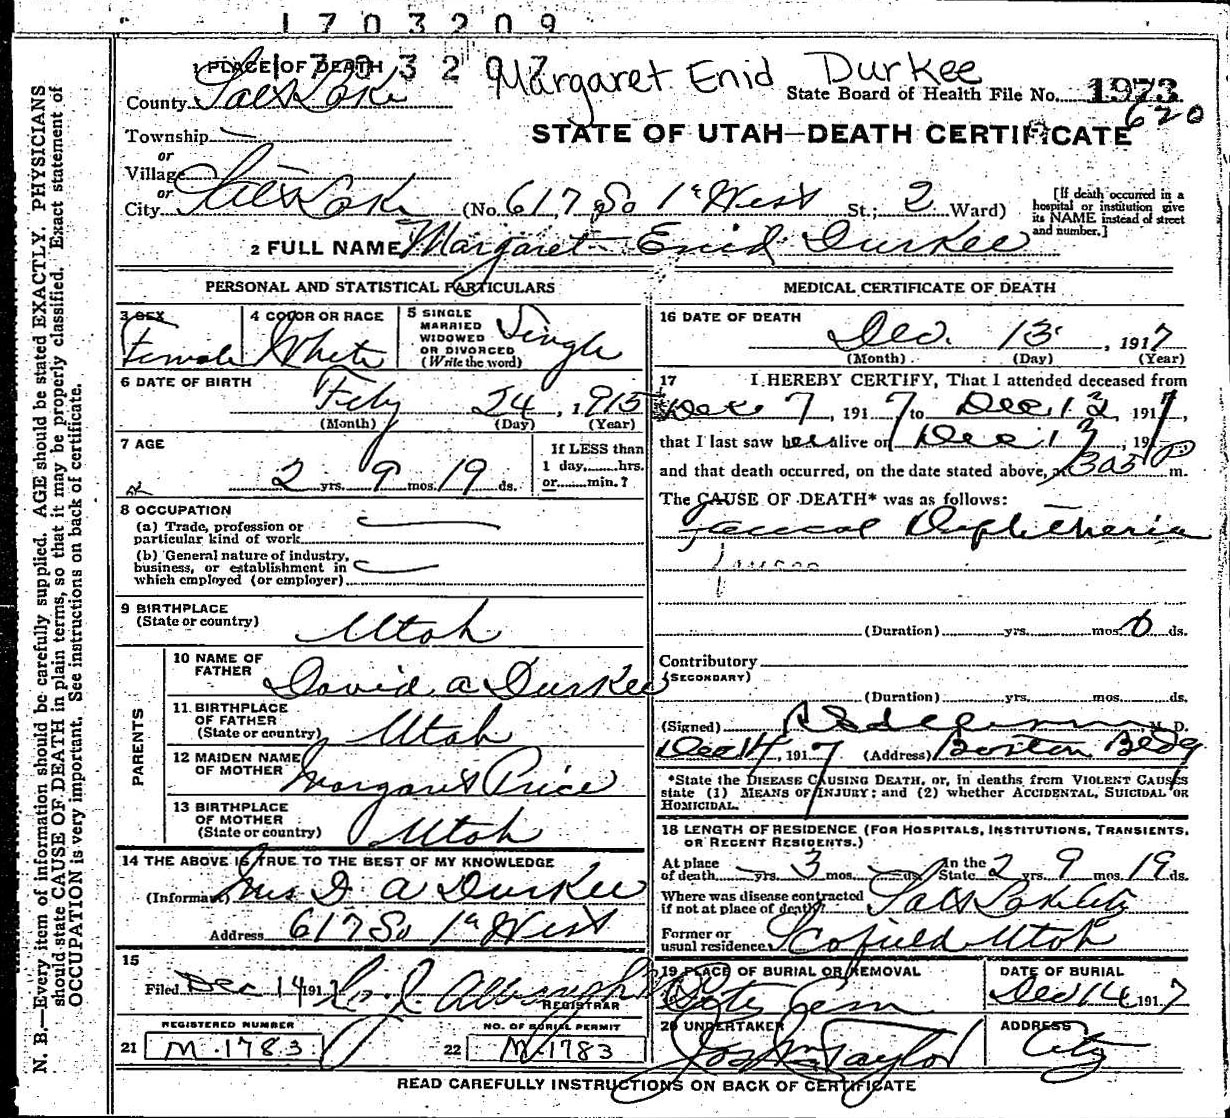 1703209
1703297
Margaret Enid Durkee
1 PLACE OF DEATH
State Board of Health File No. 1973
620
County Salt Lake
STATE OF UTAH—DEATH CERTIFICATE
Township
or
Village
or
City Salt Lake (No. 617 So 1st West St.; 2 Ward)
[If death occurred in a hospital or institution give its NAME instead of street and number.]
2 FULL NAME Margaret Enid Durkee
PERSONAL AND STATISTICAL PARTICULARS
3 SEX Female
4 COLOR OR RACE White
5 SINGLE MARRIED WIDOWED OR DIVORCED (Write the word) Single
6 DATE OF BIRTH
Feby 24, 1915
(Month) (Day) (Year)
7 AGE
2 yrs. 9 mos. 19 ds.
If LESS than 1 day......hrs. or......min.?
8 OCCUPATION
(a) Trade, profession or particular kind of work
(b) General nature of industry, business, or establishment in which employed (or employer)
9 BIRTHPLACE (State or country) Utah
PARENTS
10 NAME OF FATHER David A Durkee
11 BIRTHPLACE OF FATHER (State or country) Utah
12 MAIDEN NAME OF MOTHER Margaret Price
13 BIRTHPLACE OF MOTHER (State or country) Utah
14 THE ABOVE IS TRUE TO THE BEST OF MY KNOWLEDGE
(Informant) Mrs D A Durkee
Address 617 So 1st West
15
Filed Dec 14 191
REGISTRAR
REGISTERED NUMBER
21 M.1783
NO. OF BURIAL PERMIT
22 M.1783
MEDICAL CERTIFICATE OF DEATH
16 DATE OF DEATH
Dec. 13, 1917
(Month) (Day) (Year)
17 I HEREBY CERTIFY, That I attended deceased from
Dec 7, 1917 to Dec 13 1917,
that I last saw her alive on Dec 13, 1917
and that death occurred, on the date stated above, at 305 P m.
The CAUSE OF DEATH* was as follows:
Faucial Diphtheria
(Duration) yrs. mos. 6 ds.
Contributory
(SECONDARY)
(Duration) yrs. mos. ds.
(Signed) M. D.
Dec 14, 1917 (Address) Boston Bldg
*State the DISEASE CAUSING DEATH, or, in deaths from VIOLENT CAUSES state (1) MEANS OF INJURY; and (2) whether ACCIDENTAL, SUICIDAL OR HOMICIDAL.
18 LENGTH OF RESIDENCE (FOR HOSPITALS, INSTITUTIONS, TRANSIENTS, OR RECENT RESIDENTS.)
At place of death yrs. 3 mos. ds. In the State 2 yrs. 9 mos. 19 ds.
Where was disease contracted if not at place of death? Salt Lake City
Former or usual residence Scofield Utah
19 PLACE OF BURIAL OR REMOVAL
City Cem
DATE OF BURIAL
Dec 14 1917
20 UNDERTAKER
Jos Wm Taylor
ADDRESS
City
READ CAREFULLY INSTRUCTIONS ON BACK OF CERTIFICATE
N. B.—Every item of information should be carefully supplied. AGE should be stated EXACTLY. PHYSICIANS
should state CAUSE OF DEATH in plain terms, so that it may be properly classified. Exact statement of
OCCUPATION is very important. See instructions on back of certificate.